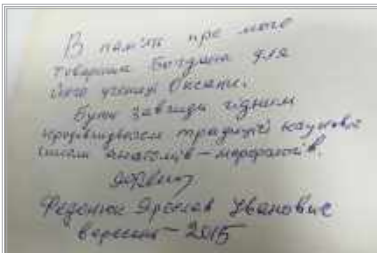 В пам'ять про мого
товариша Богдана для
його учениці Оксани.
Бути завжди гідним
традицій наукової
школи анатомів – морфологів.
Федонюк Ярослав Іванович
вересень – 2015